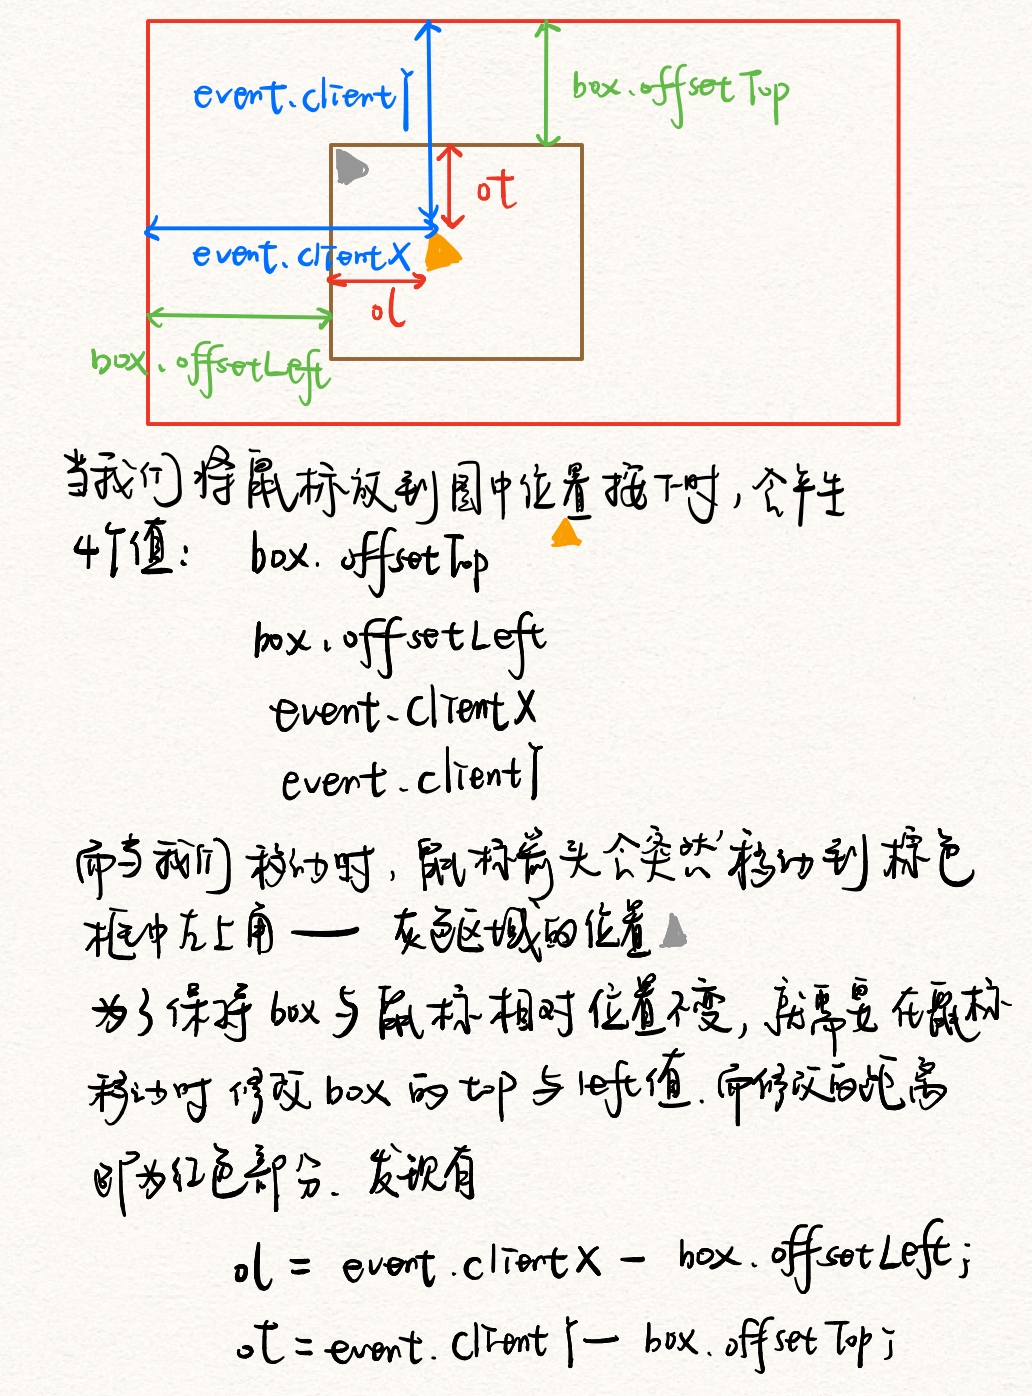 event.clientY
box.offsetTop
ot
event.clientX
ol
box.offsetLeft
当我们将鼠标放到图中位置按下时，会产生
4个值： box.offsetTop
box.offsetLeft
event.clientX
event.clientY
而当我们移动时，鼠标箭头会突然移动到棕色
框中左上角 —— 灰色区域的位置
为了保持box与鼠标相对位置不变，就需要在鼠标
移动时修改box的top与left值.而修改的距离
即为红色部分.发现有
ol = event.clientX - box.offsetLeft;
ot = event.clientY - box.offsetTop;